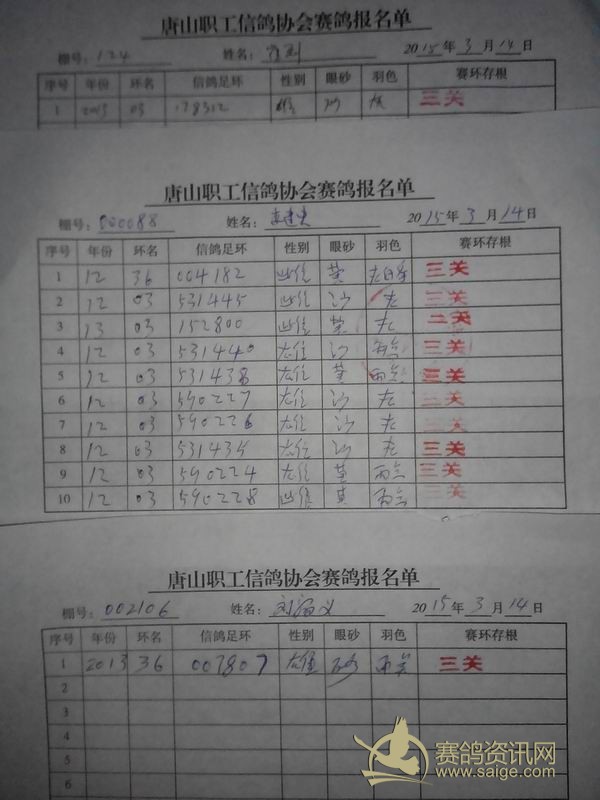 唐山职工信鸽协会赛鸽报名单
棚号: 124 姓名: 2015年3月14日
序号 年份 环名 信鸽足环 性别 眼砂 羽色 赛环存根
1 2013 03 178312 雄 砂 灰 三关
唐山职工信鸽协会赛鸽报名单
棚号: 000088 姓名: 2015年3月14日
序号 年份 环名 信鸽足环 性别 眼砂 羽色 赛环存根
1 12 36 004182 此隹 黄 三关
2 12 03 531445 此隹 沙 灰 三关
3 13 03 152800 此隹 黄 灰 二关
4 12 03 531440 左隹 沙 雨点 三关
5 12 03 531438 左隹 黄 雨点 三关
6 12 03 590227 左隹 沙 灰 三关
7 12 03 590226 左隹 沙 灰 三关
8 12 03 531435 左隹 沙 灰 三关
9 12 03 590224 左隹 黄 雨点 三关
10 12 03 590228 此隹 黄 雨点 三关
唐山职工信鸽协会赛鸽报名单
棚号: 002106 姓名: 刘 义 2015年3月14日
序号 年份 环名 信鸽足环 性别 眼砂 羽色 赛环存根
1 2013 36 007807 雄 砂 雨点 三关
2
3
4
5
6
赛鸽资讯网
www.saige.com